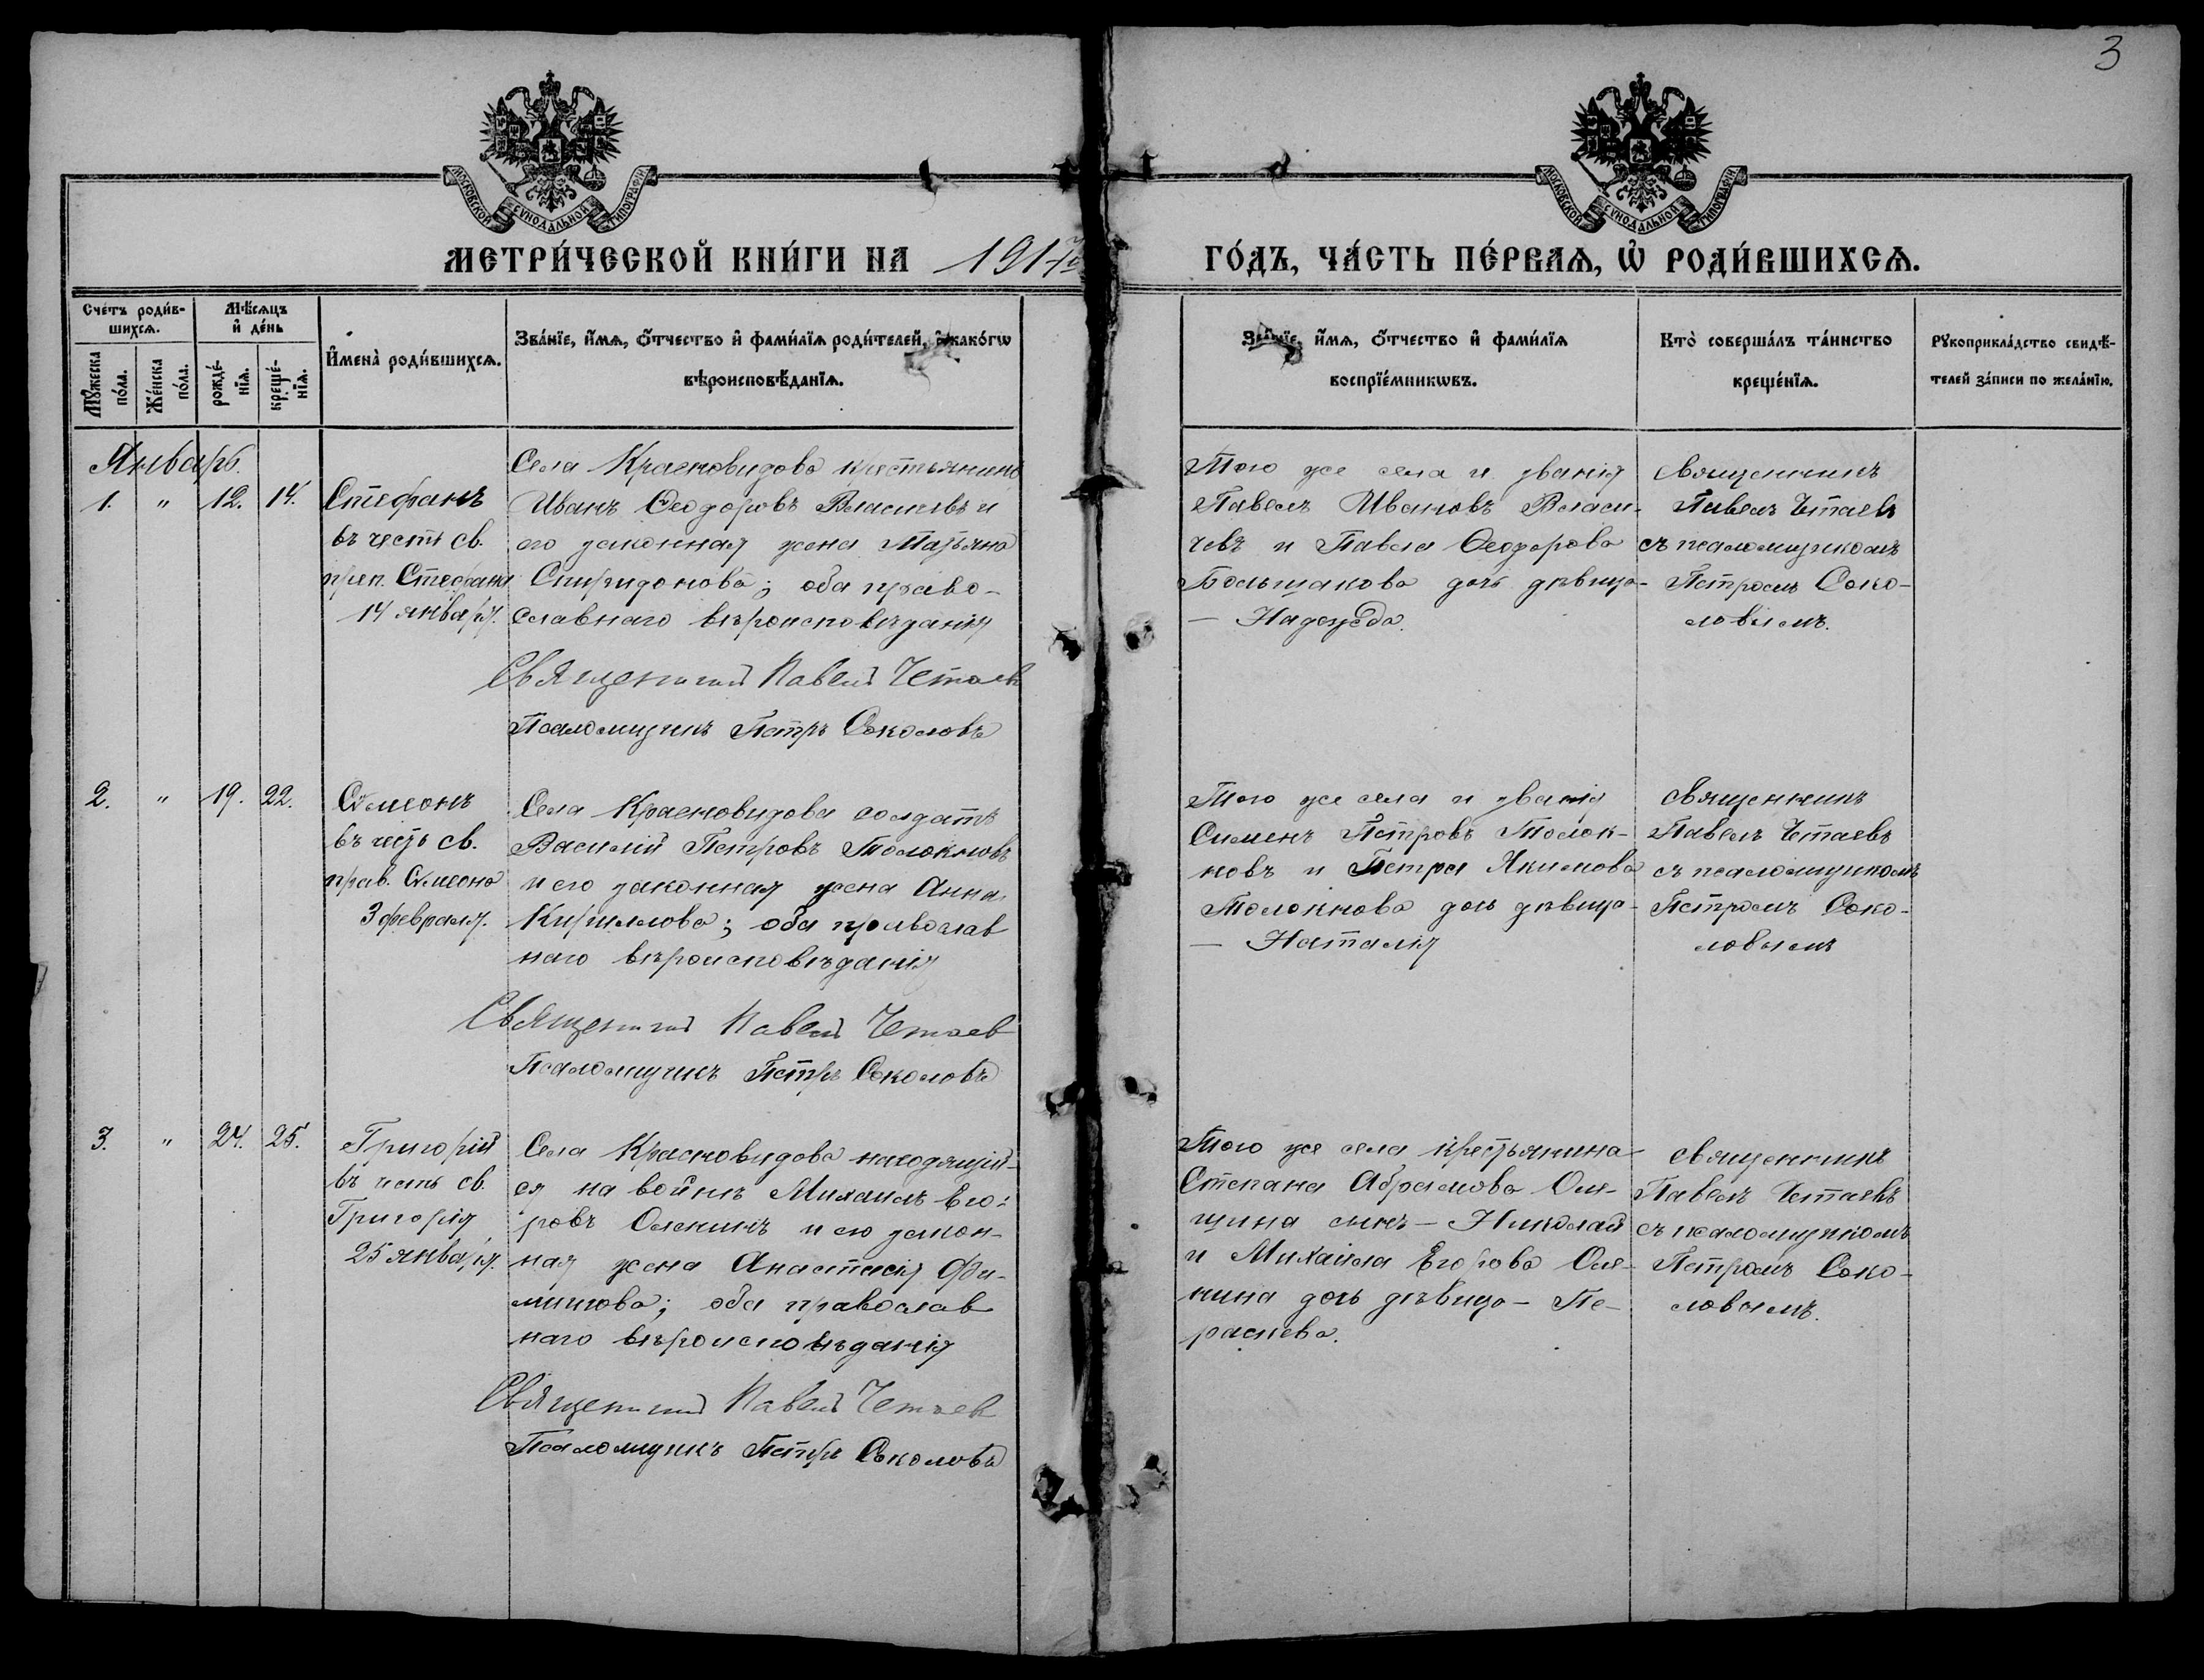 3
МОСКОВСКОЙ СѴНОДАЛЬНОЙ ТИПОГРАФІИ
МОСКОВСКОЙ СѴНОДАЛЬНОЙ ТИПОГРАФІИ
МЕТРИ́ЧЕСКОЙ КНИ́ГИ НА 1917й ГО́ДЪ, ЧА́СТЬ ПЕ́РВАѦ, Ѡ҆ РОДИ́ВШИХСѦ.
Сче́тъ роди́в-
шихсѧ.
Мꙋ́жеска по́ла.
Же́нска по́ла.
Мѣ́сѧцъ
и҆ де́нь
рожде́-
нїѧ.
креще́-
нїѧ.
И҆мена̀ роди́вшихсѧ.
Зва́нїе, и҆́мѧ, ѻ҆́тчество и҆ фами́лїѧ роди́телей, и҆ како́гѡ
вѣроисповѣ́данїѧ.
Зва́нїе, и҆́мѧ, ѻ҆́тчество и҆ фами́лїѧ
воспрїе́мникѡвъ.
Кто̀ соверша́лъ та́инство
креще́нїѧ.
Рꙋкоприкла́дство свидѣ́-
телей за́писи по жела́нїю.
Январь.
1. " 12. 14.
Стефанъ
въ честь св.
преп. Стефана
14 января.
Села Красновидова крестьянинъ
Иванъ Ѳеодоровъ Власичевъ и
его законная жена Татьяна
Спиридонова; оба право-
славнаго вѣроисповѣданія
Священникъ Павелъ Четаевъ
Псаломщикъ Петръ Соколовъ
Того же села и званія
Павелъ Ивановъ Власи-
чевъ и Павла Ѳеодорова
Большакова дочь дѣвица-
— Надежда.
Священникъ
Павелъ Четаевъ
съ псаломщикомъ
Петромъ Соко-
ловымъ.
2. " 19. 22.
Сѵмеонъ
въ честь св.
прав. Сѵмеона
3 февраля.
Села Красновидова солдатъ
Василій Петровъ Толокновъ
и его законная жена Анна
Кириллова; оба православ
наго вѣроисповѣданія
Священникъ Павелъ Четаев
Псаломщикъ Петръ Соколовъ
Того же села и званія
Сименъ Петровъ Толок-
новъ и Петра Якимова
Толокнова дочь дѣвица-
— Наталія
Священникъ
Павелъ Четаевъ
съ псаломщикомъ
Петромъ Соко-
ловымъ
3. " 24. 25.
Григорій
въ честь св.
Григорія
25 января.
Села Красновидова находящій-
ся на войнѣ Михаилъ Его-
ровъ Оленинъ и его закон-
ная жена Анастасія Фи-
миnова; оба православ
наго вѣроисповѣданія
Священникъ Павелъ Четаев
Псаломщикъ Петръ Соколовъ
Того же села крестьянина
Степана Абрамова
сынъ — Николай
и Михаила Егорова Оле-
нина дочь дѣвица — Пе-
раскева.
Священникъ
Павелъ Четаевъ
съ псаломщикомъ
Петромъ Соко-
ловымъ.